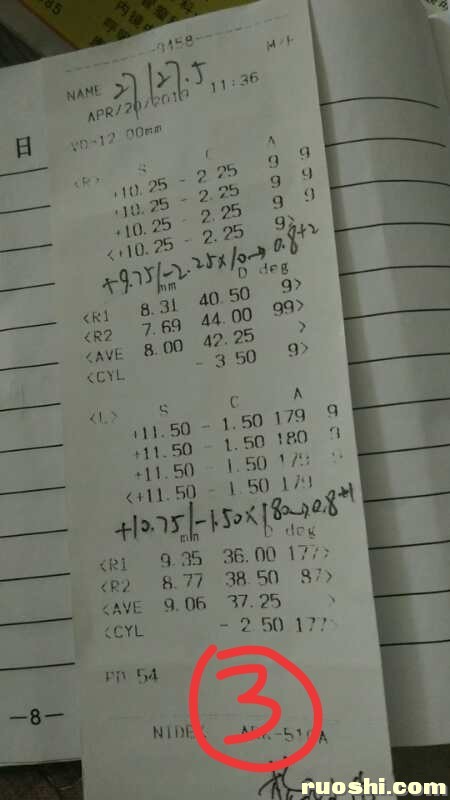 3458
M/F
NAME 27/27.5
APR/20/2010 11:36
VD=12.00mm
<R> S C A
+10.25 - 2.25 9 9
+10.25 - 2.25 9 9
+10.25 - 2.25 9 9
<+10.25 - 2.25 9>
+9.75/-2.25×10→0.8+2
mm D deg
<R1 8.31 40.50 9>
<R2 7.69 44.00 99>
<AVE 8.00 42.25 >
<CYL - 3.50 9>
<L> S C A
+11.50 - 1.50 179 9
+11.50 - 1.50 180 9
+11.50 - 1.50 179 9
<+11.50 - 1.50 179
+10.75/-1.50×180→0.8+1
mm D deg
<R1 9.35 36.00 177>
<R2 8.77 38.50 87>
<AVE 9.06 37.25 >
<CYL - 2.50 177>
PD 54
3
NIDEK ARK-510A
日
—8—
ruoshi.com